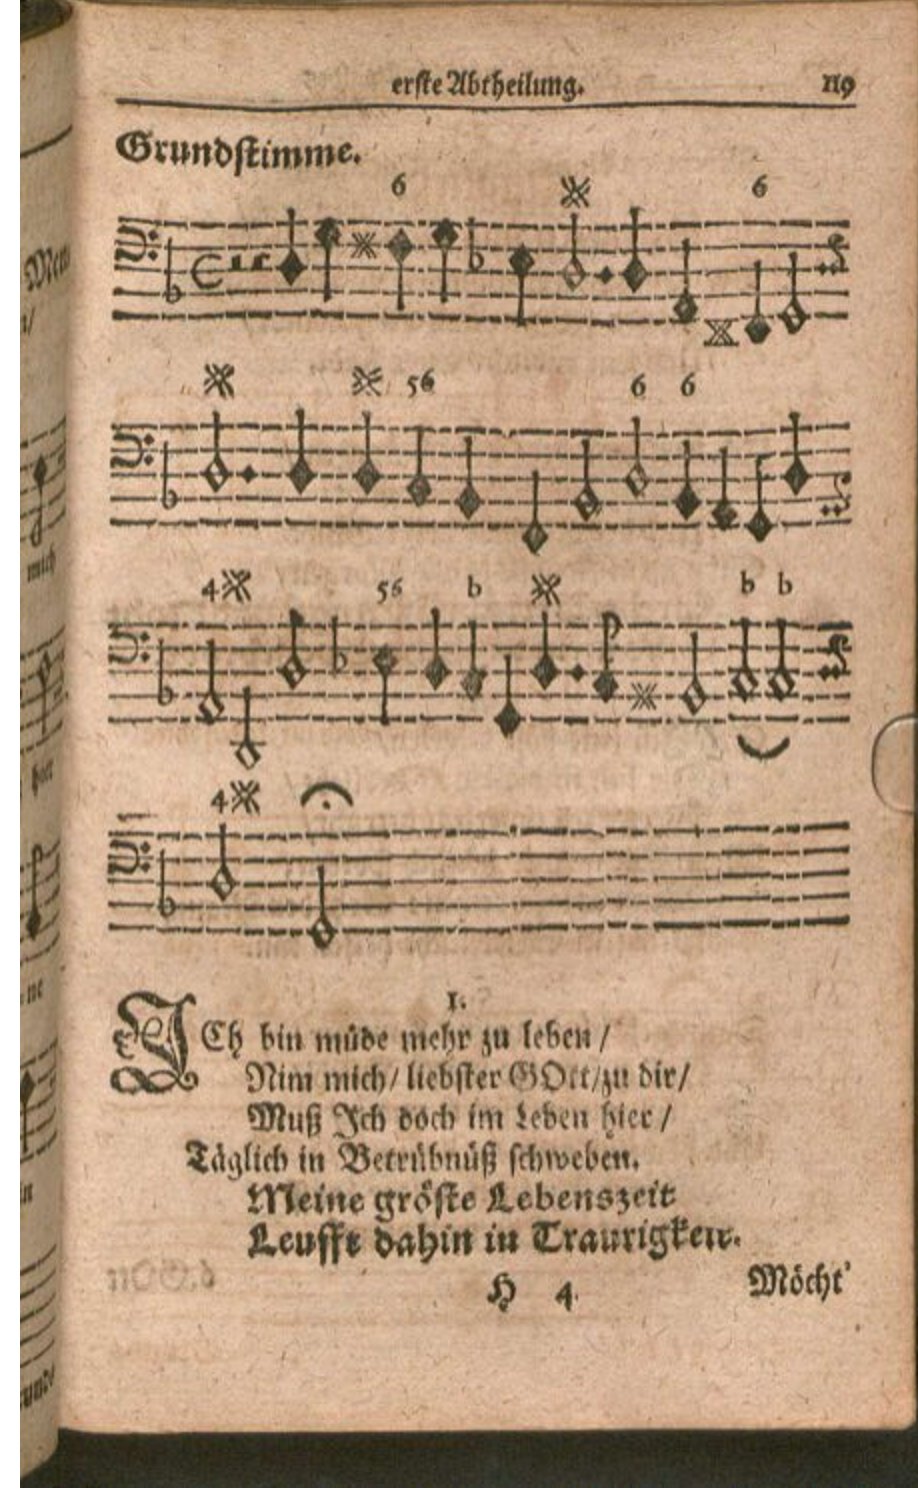 erste Abtheilung. 119
Grundstimme.
6 6
56 6 6
4 56 b b b
4
I.
ICh bin müde mehr zu leben /
Nim mich / liebster GOtt / zu dir /
Muß Ich doch im Leben hier /
Täglich in Betrübnüß schweben.
Meine gröste Lebenszeit
Leufft dahin in Traurigkeit.
H 4
Möcht'
mich